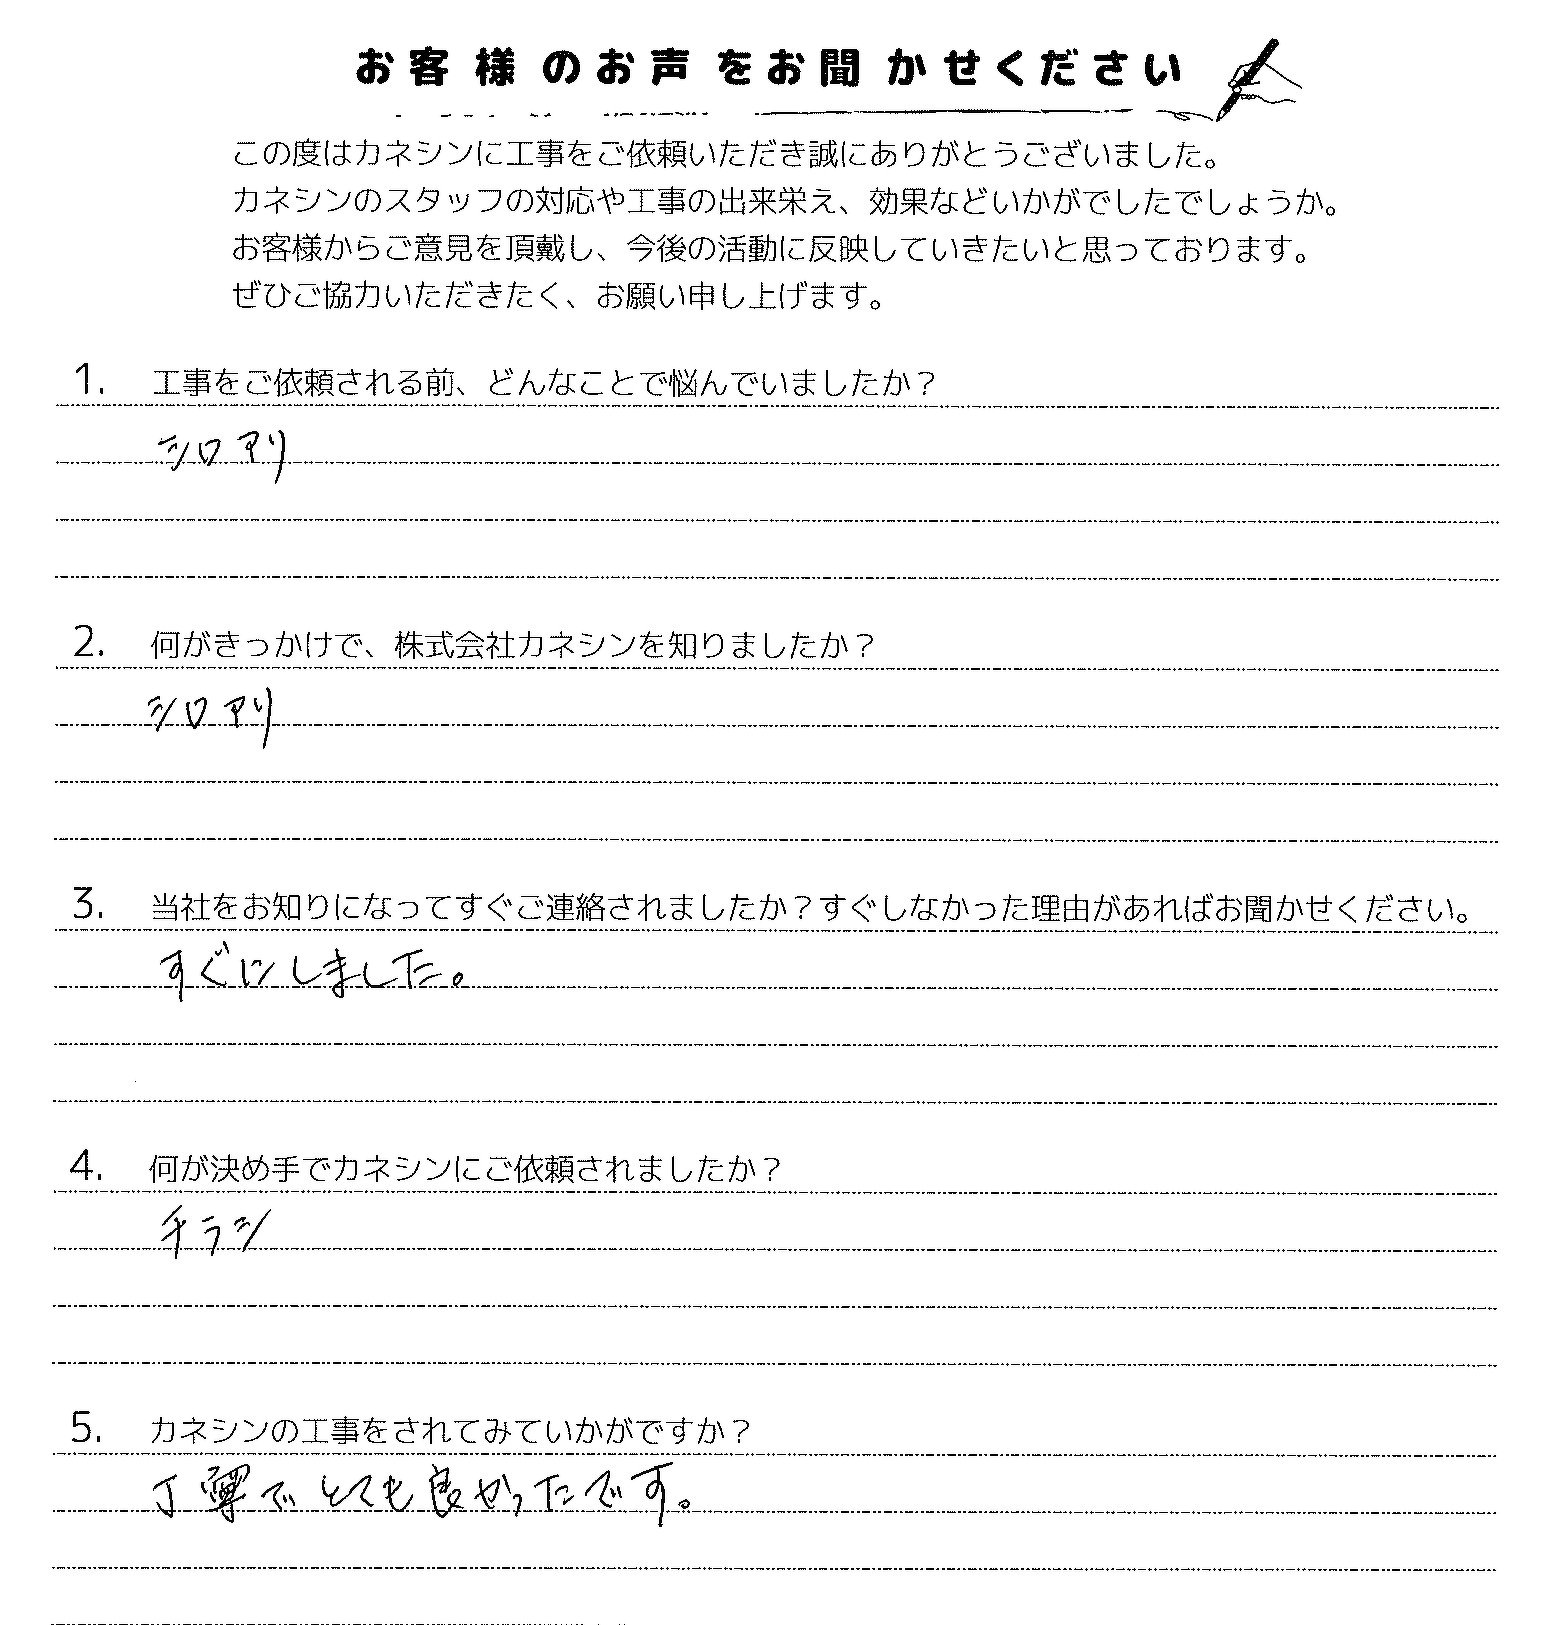 お客様のお声をお聞かせください
この度はカネシンに工事をご依頼いただき誠にありがとうございました。
カネシンのスタッフの対応や工事の出来栄え、効果などいかがでしたでしょうか。
お客様からご意見を頂戴し、今後の活動に反映していきたいと思っております。
ぜひご協力いただきたく、お願い申し上げます。
1. 工事をご依頼される前、どんなことで悩んでいましたか？
シロアリ
2. 何がきっかけで、株式会社カネシンを知りましたか？
シロアリ
3. 当社をお知りになってすぐご連絡されましたか？すぐしなかった理由があればお聞かせください。
すぐにしました。
4. 何が決め手でカネシンにご依頼されましたか？
チラシ
5. カネシンの工事をされてみていかがですか？
丁寧でとても良かったです。